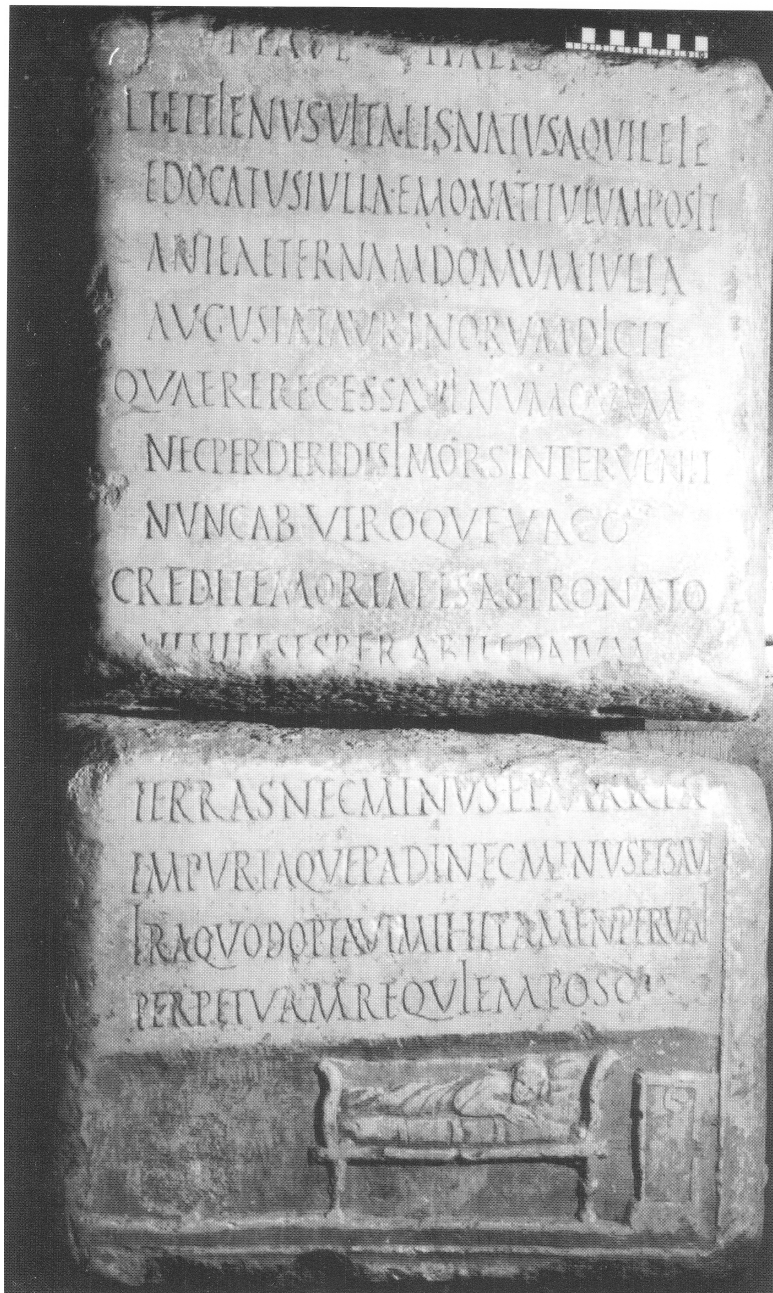 LTETTIENVSVITALISNATVSAQVILEIE
EDOCATVSIVLIA·EMONATITVLVMPOSIT
ANTEAETERNAMDOMVMIVLIA
AVGVSTATAVRINORVMDICIT
QVAERERECESSAVINVMQVAM
NECPERDERIDISIMORSINTERVENIT
NVNCABVTROQVEVACO
CREDITEMORTALISASTRONATO
DATVM
TERRASNECMINVSET
EMPVRIAQVEPADINECMINVSETSAVI
IRAQVODOPTAVIMIHITAMENPERVEN
PERPETVAMREQVIEMPOSCO